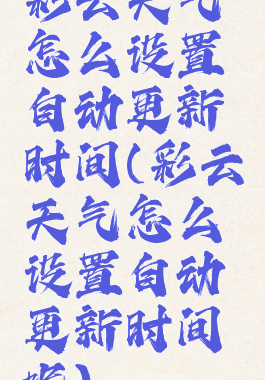 彩云天气
怎么设置
自动更新
时间(彩云
天气怎么
设置自动
更新时间